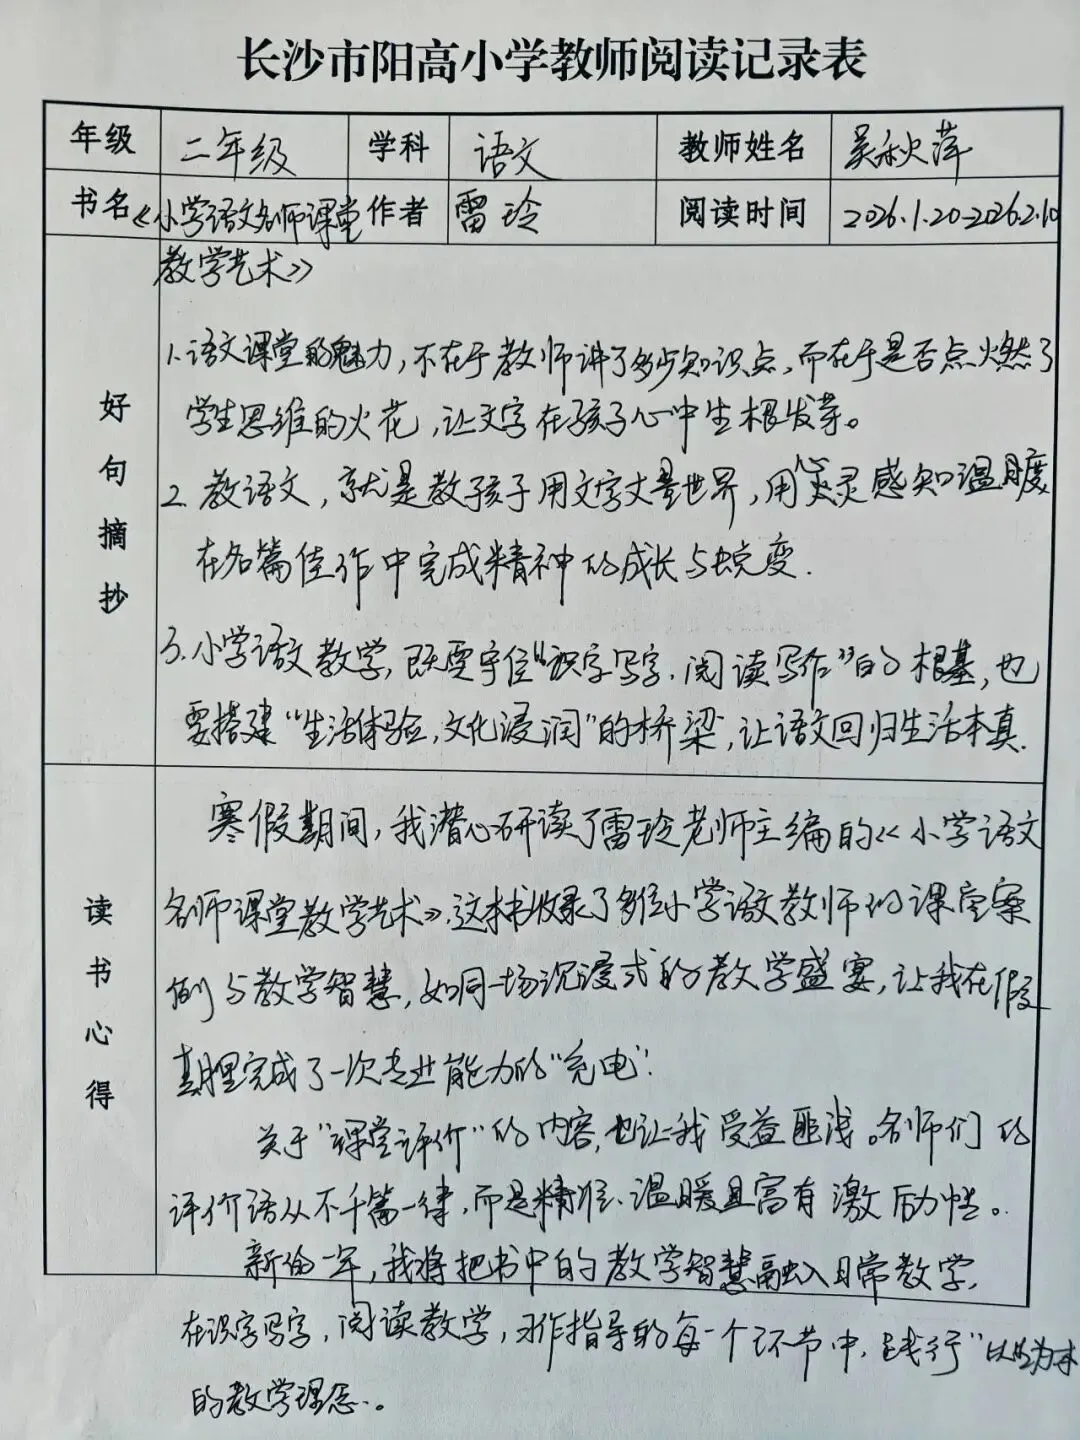 长沙市阳高小学教师阅读记录表
年级 二年级 学科 语文 教师姓名 吴秋萍
书名 《小学语文名师课堂 作者 雷玲 阅读时间 2026.1.20-2026.2.10
教学艺术》
好句摘抄
1.语文课堂的魅力,不在于教师讲了多少知识点,而在于是否点火燃了
学生思维的火花,让文字在孩子心中生根发芽。
2.教语文,就是教孩子用文字丈量世界,用心灵感知温度
在名篇佳作中完成精神的成长与蜕变.
3.小学语文教学,既要守住“识字写字.阅读写作”的根基,也
要搭建“生活体验,文化浸润”的桥梁,让语文回归生活本真.
读书心得
寒假期间,我潜心研读了雷玲老师主编的《小学语文
名师课堂教学艺术》,这本书收录了多位小学语文教师的课堂案
例与教学智慧,如同一场沉浸式的教学盛宴,让我在假
期里完成了一次专业能力的“充电”.
关于“课堂评价”的内容,也让我受益匪浅。名师们的
评价语从不千篇一律,而是精准、温暖且富有激励性。
新的一年,我将把书中的教学智慧融入日常教学,
在识字写字,阅读教学,习作指导的每一个环节中,践行“以生为本
的教学理念.。